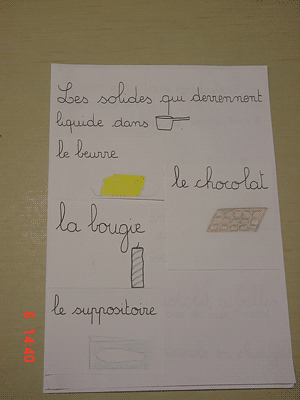 Les solides qui deviennent
liquide dans
le beurre
le chocolat
la bougie
le suppositoire
6 14:40